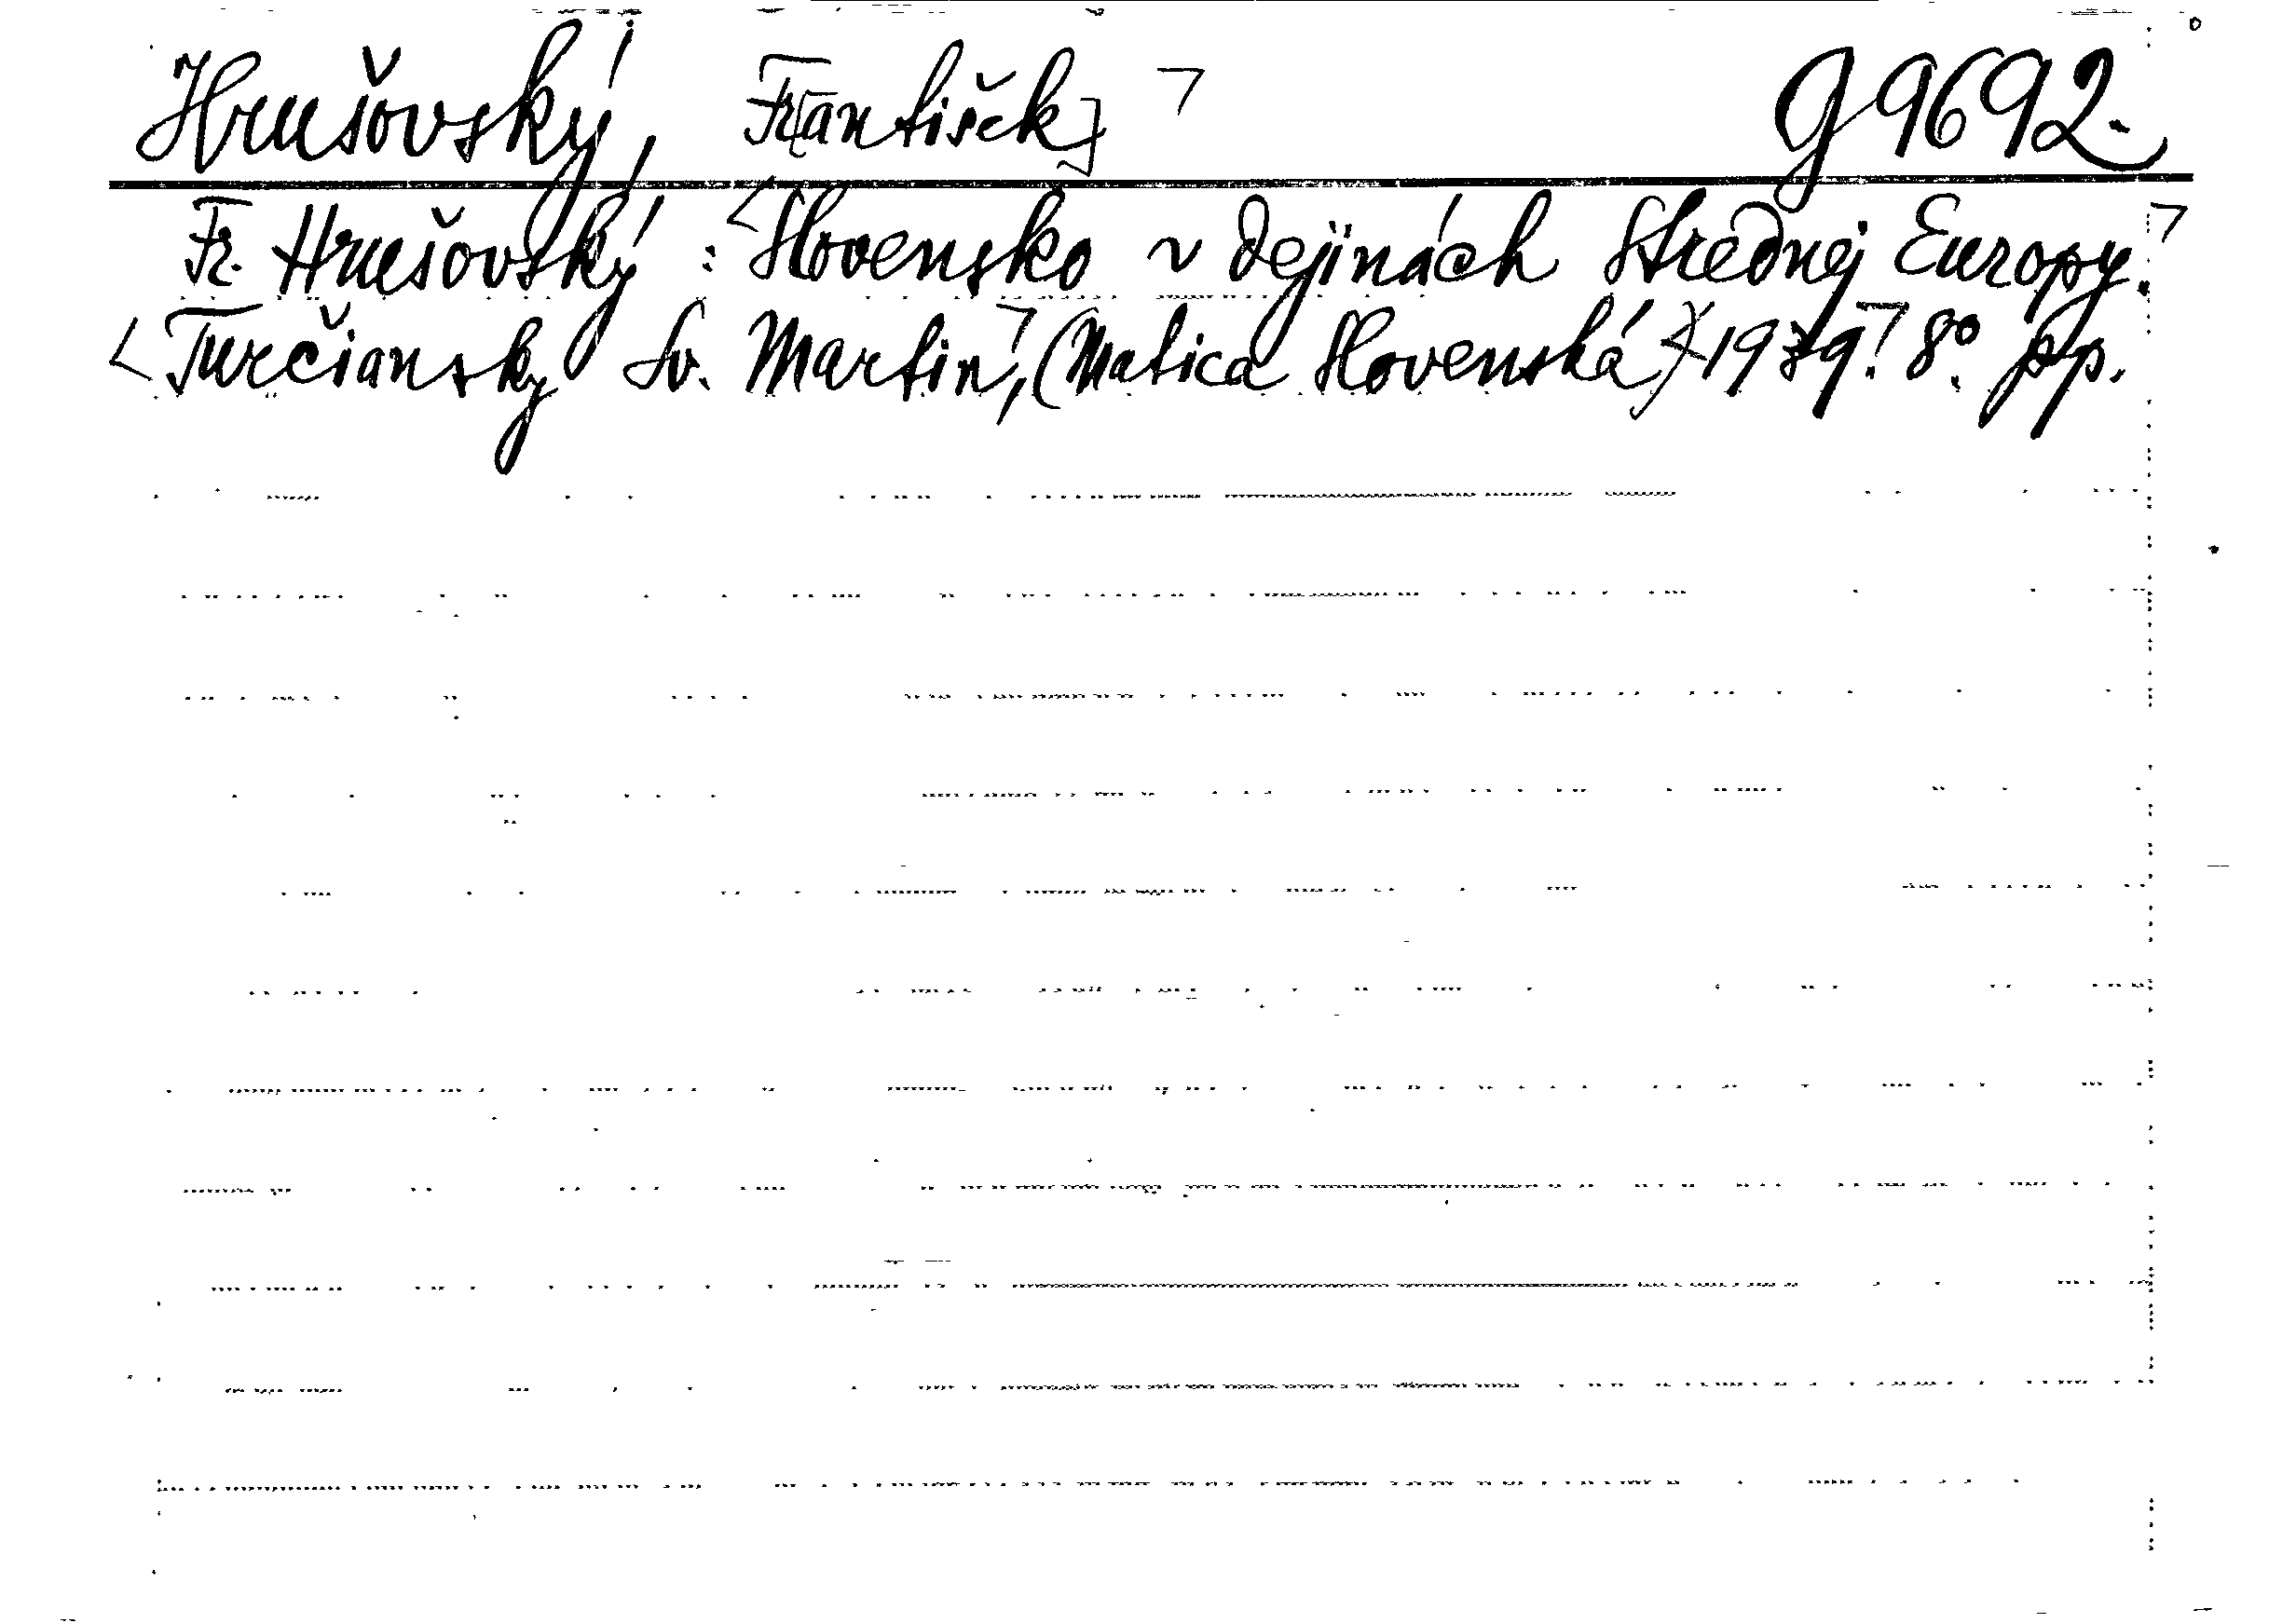 Hrušovský, Fr[antišek] G 9692.
Fr. Hrušovský: Slovensko v dejinách Strednej Europy.
Turčiansky Sv. Martin, (Matica Slovenská) 1939. 8° pp.